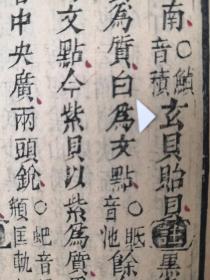 南○鰿音積玄貝貽貝
為質白為文點○貾音池餘
文點今紫貝以紫為質
中央廣兩頭銳○蚆音頯匡軌